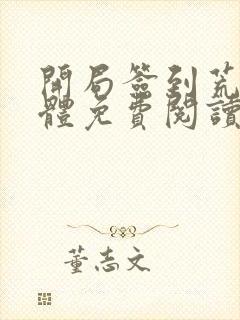 開局簽到荒
體免費閱讀
董志文